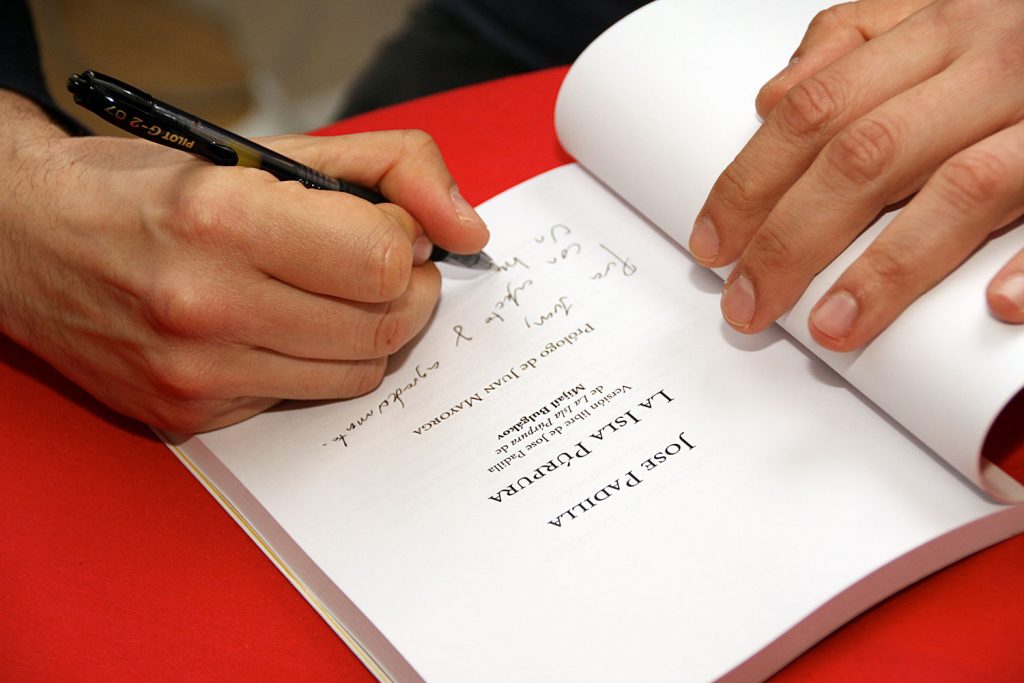 JOSE PADILLA
LA ISLA PÚRPURA
Versión libre de Jose Padilla
de La Isla Púrpura de
Mijaíl Bulgákov
Prólogo de JUAN MAYORGA
Para Juan,
con afecto y agradecimiento.
Un
PILOT G-2 07